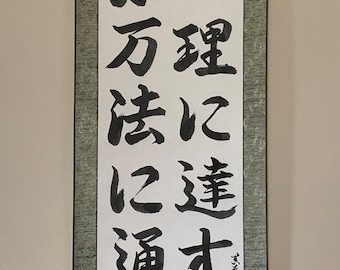 理に達す
万法に通